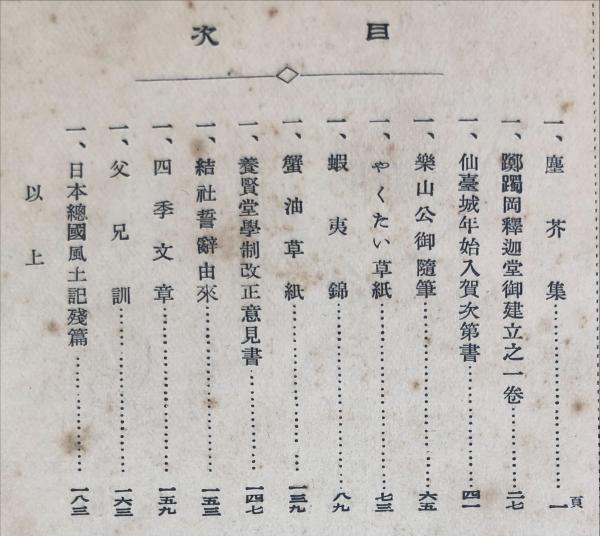 目次
頁
一、塵芥集…………一
一、躑躅岡釋迦堂御建立之一卷…………二七
一、仙臺城年始入賀次第書…………四一
一、樂山公御隨筆…………六五
一、やくたい草紙…………七三
一、蝦夷錦…………八九
一、蟹油草紙…………一三九
一、養賢堂學制改正意見書…………一四七
一、結社誓辭由來…………一五三
一、四季文章…………一五九
一、父兄訓…………一六三
一、日本總國風土記殘篇…………一八三
以上